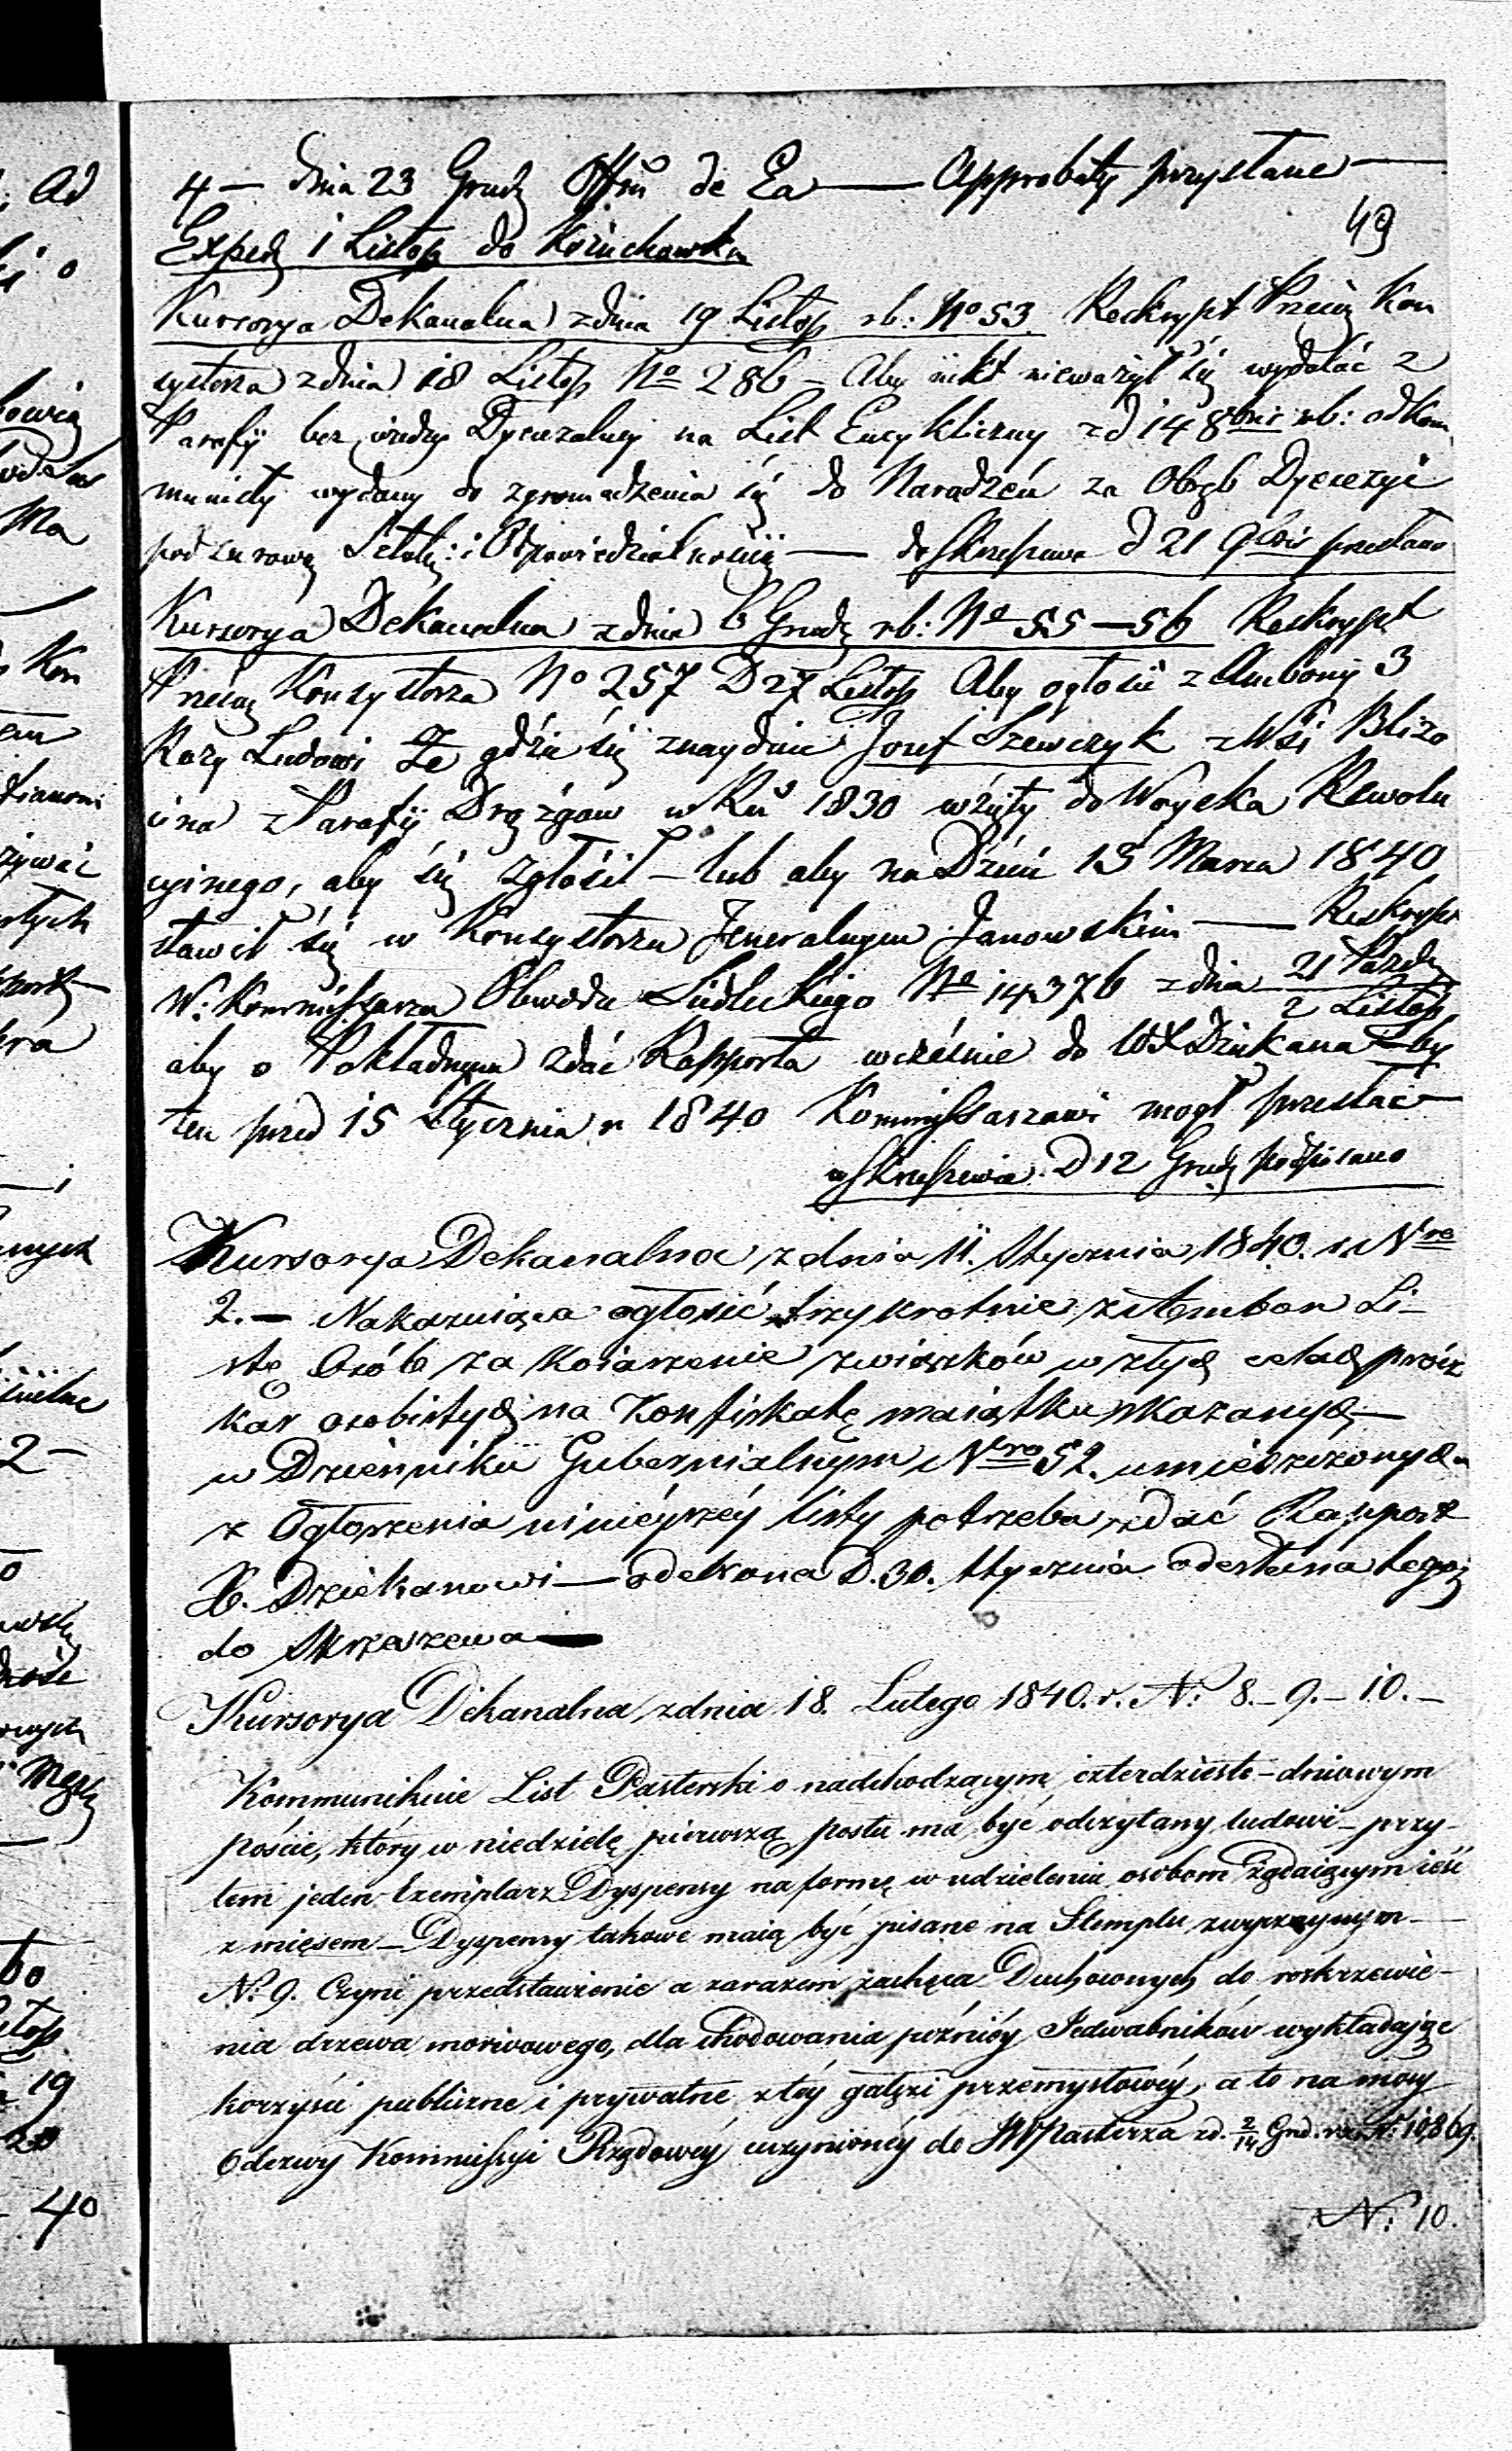 4 — dnia 23 Grudz Offm de Ea — Approbaty przysłane —
49
Exped 1 Listop do Kożuchowka
Kursorya Dekanalna z dnia 19 Listop rb: No 53 Reskrypt Przeius Kon
systorza z dnia 18 Listop No 286 – Aby nikt nieważył się wydalać z
Parafij bez wiedzy Dyecezalney na List Encykliczny z d 14 8bris rb: od Kom
munisty wydany do zgromadzenia się do Naradzeń za Obręb Dyecezyi
pod surową Odpowiedzialnością — do Skrzeszewa d 21 9bris przesłano
Kursorya Dekanalna z dnia 6 Grudz rb: No 55 — 56 Reskrypt
Konsystorza No 257 D 27 Listop Aby ogłosić z Ambony 3
Razy Ludowi Że gdzie się znayduie Josef Szewczyk z Wsi Blizo
cina z Parafij Drążgow w Ru 1830 wzięty do Woyska Rewolu
cyinego, aby się zgłosił – lub aby na Dzień 15 Marca 1840
stawił się w Konsystorzu Jeneralnym Janowskim — Reskrypt
W. Kommissarza Obwodu Siedleckiego No 14376 z dnia 21 Pazdz / 2 Listop
aby o Pokładnym zdać Rapporta wcześnie do WJX Dziekana Aby
ten przed 15 Stycznia r 1840 Kommissarzowi mogł przesłać —
w Skrzeszewie D 12 Grudz podpisano
Kursorya Dekanalna z dnia 11. Stycznia 1840. r. Nro
2. — Nakazuiąca ogłosić trzykrotnie z Ambon Li-
stę Osób za Koiarzenie związków w złych celach prócz
kar osobistych na Konfiskatę maiątku skazanych —
w Dzienniku Gubernialnym Nro 52. umieszczonych
z Ogłoszenia ninieyszéy listy potrzeba zdać Rapport
X. Dziekanowi — odekona D. 30. Stycznia odesłana tegoż
do Skrzeszewa —
Kursorya Dekanalna z dnia 18. Lutego 1840. r. N: 8. – 9. – 10. –
Kommunikuie List Pasterski o nadchodzącym czterdziesto-dniowym
poście, który w niedzielę pierwszą postu ma być odczytany ludowi – przy-
tem jeden Exemplarz Dyspensy na formę w udzielenia osobom żądaiącym ieść
z mięsem – Dyspensy takowe maią być pisane na Stemplu zwyczaynym —
N: 9. Czyni przedstawienie a zarazem zachęca Duchownych do rozkrzewie-
nia drzewa morwowego, dla chodowania późniéy Jedwabników wykładając
korzyści publiczne i prywatne z téy gałęzi przemysłowéy, a to na mocy
Odezwy Kommissyi Rządowéy uczynionéy do JW Pasterza z d. 2/14 Grud. r.z. N: 10,869.
N: 10.